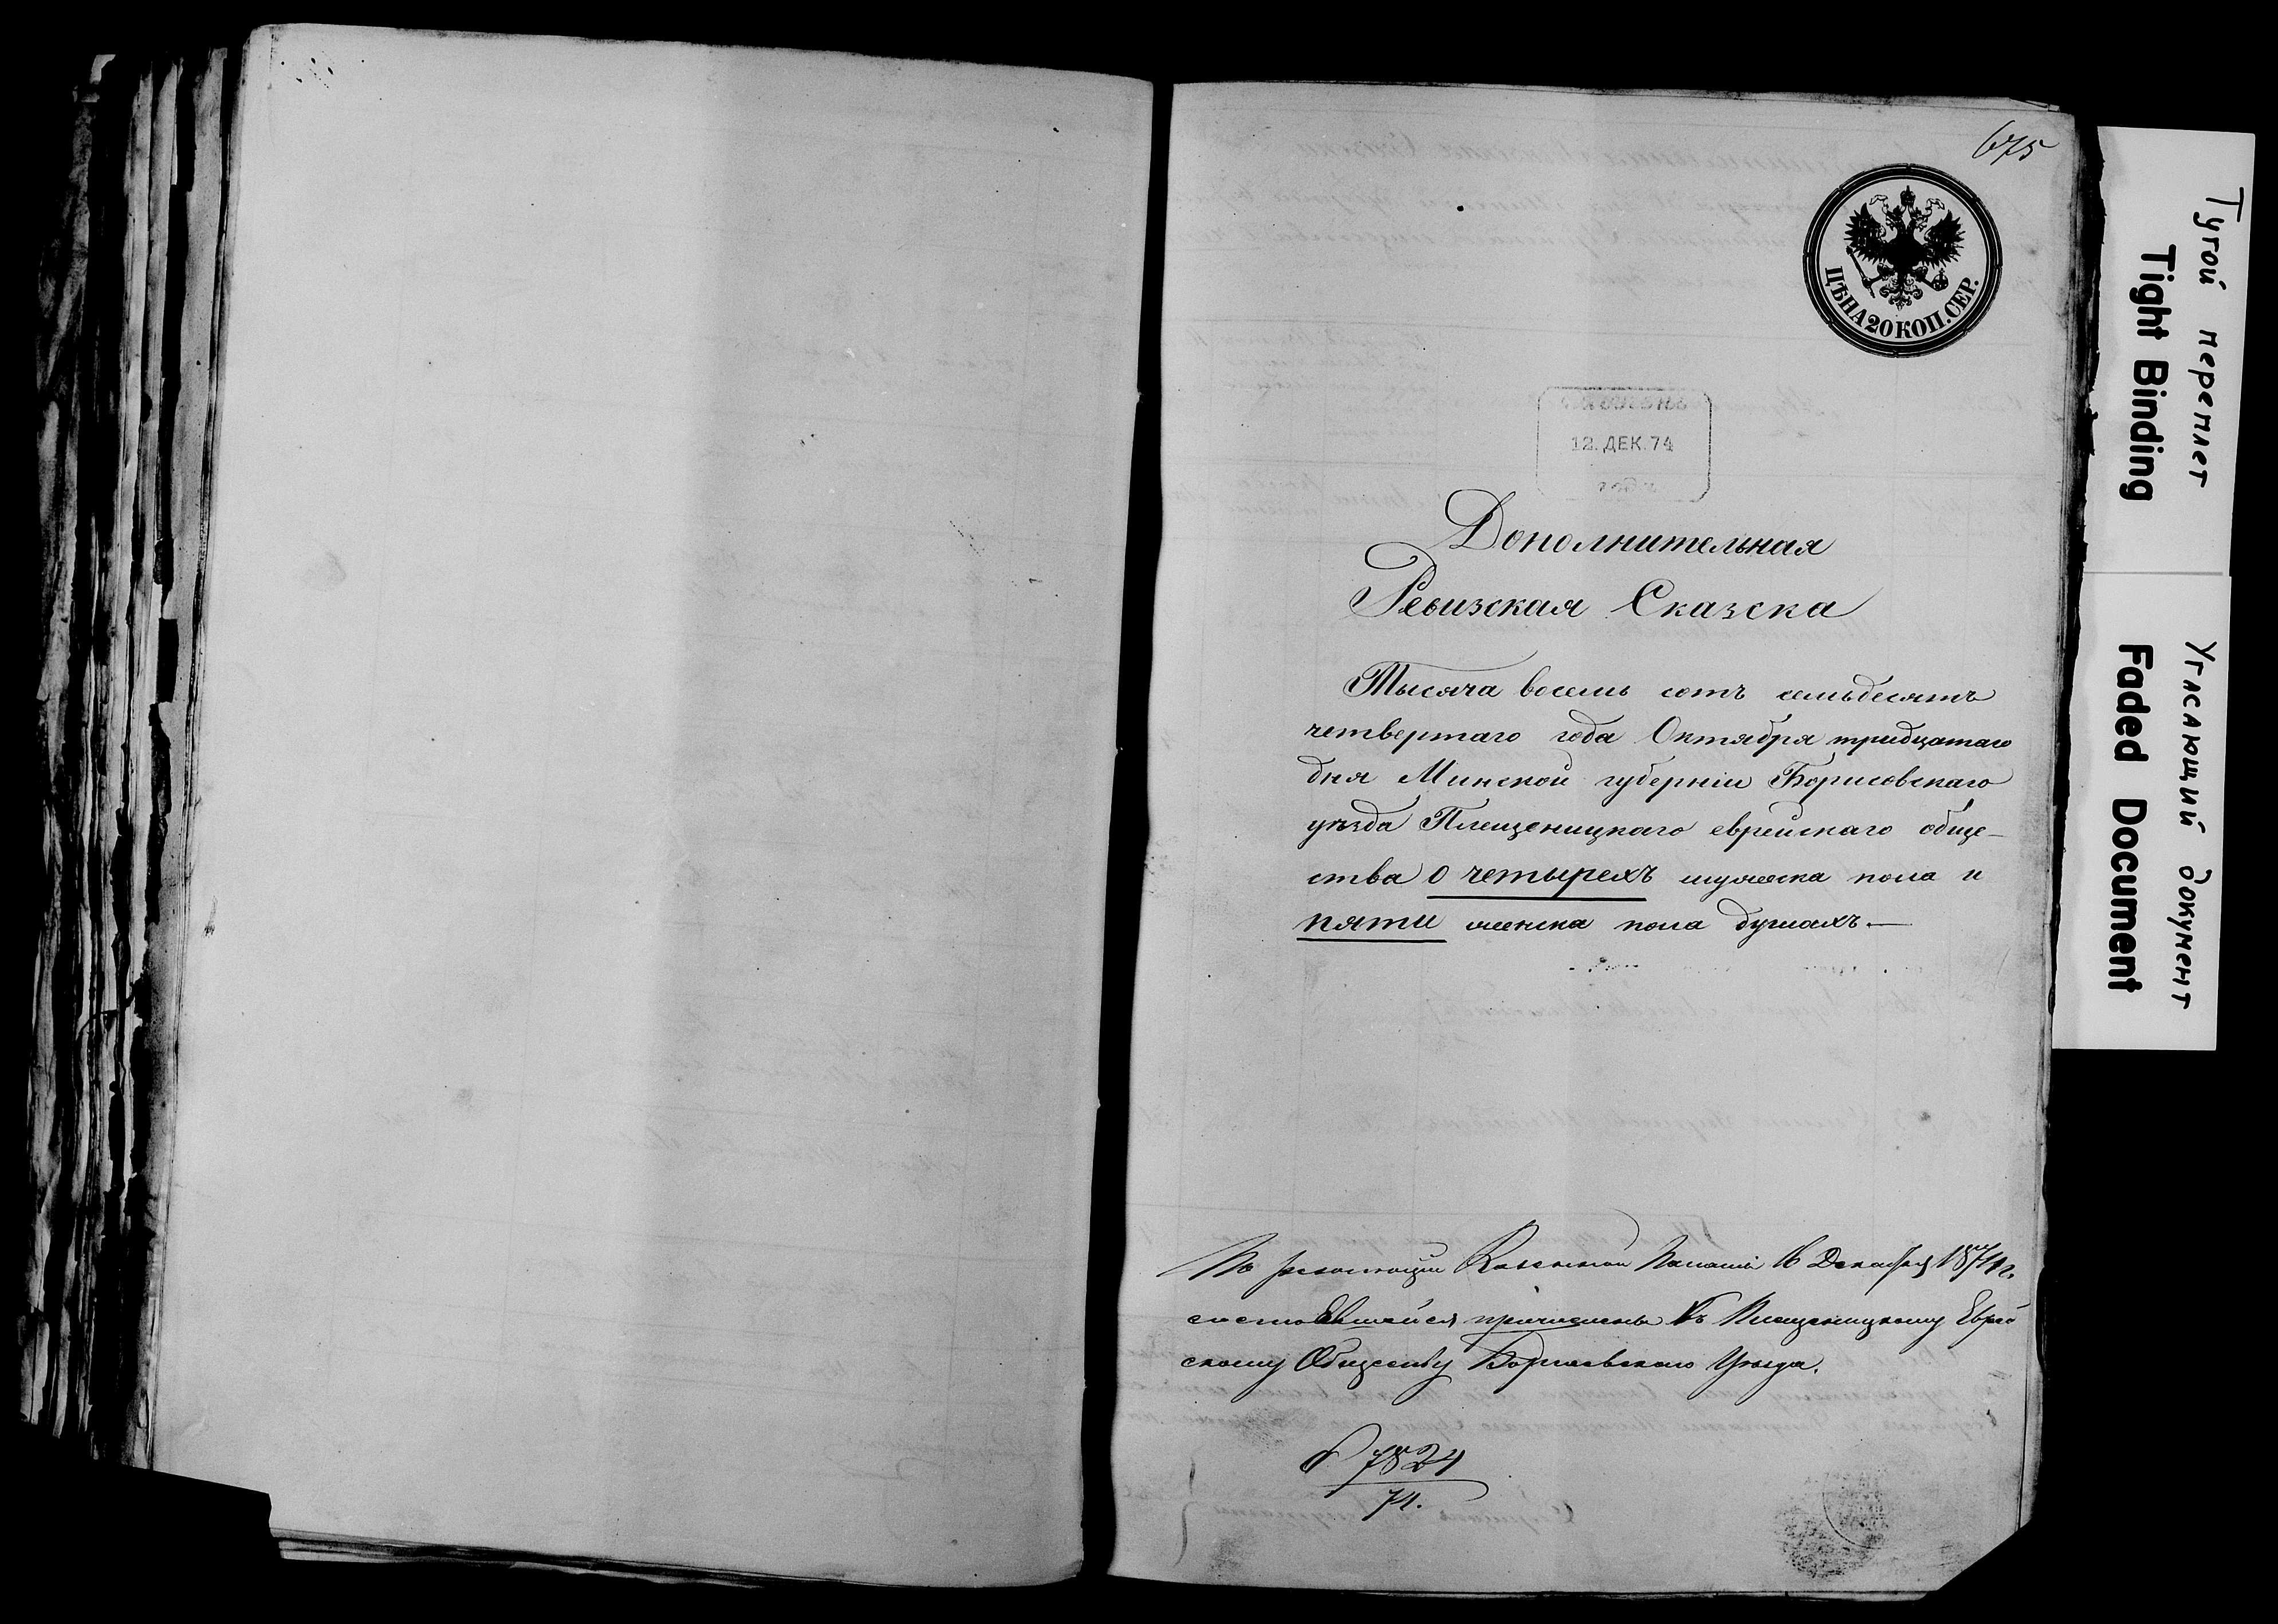 675
ЦѢНА 20 КОП. СЕР.
12. ДЕК. 74
Дополнительная
Ревизская Сказска
Тысяча восемь сотъ семьдесятъ
четвертаго года Октября тридцатаго
дня Минской губерніи Борисовскаго
уѣзда Плещеницкаго еврейскаго обще-
ства о четырехъ мужеска пола и
пяти женска пола душахъ.—
По резолюціи Казенной Палаты 16 Декабря 1874 г.
состоявшейся причислены къ Плещеницкому Еврей
скому Обществу Борисовскаго Уѣзда.
7824
74.
Тугой переплет
Tight Binding
Угасающий документ
Faded Document